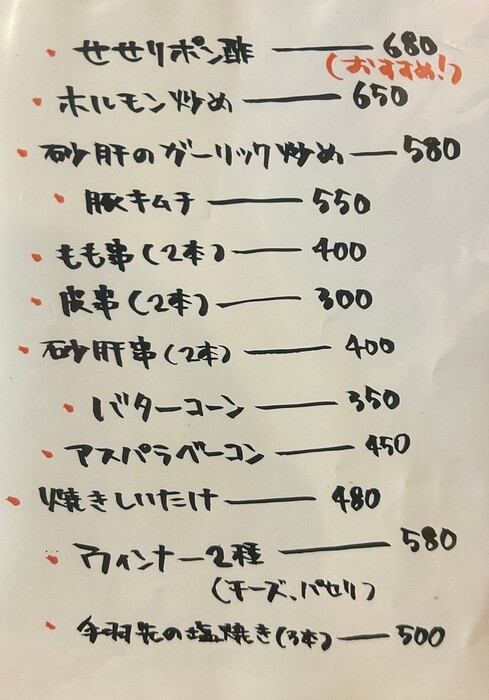 ・せせりポン酢 ── 680
(おすすめ!)
・ホルモン炒め ── 650
・砂肝のガーリック炒め ── 580
・豚キムチ ── 550
・もも串(2本) ── 400
・皮串(2本) ── 300
・砂肝串(2本) ── 400
・バターコーン ── 350
・アスパラベーコン ── 450
・焼きしいたけ ── 480
・ウィンナー2種 ── 580
(チーズ、パセリ)
・手羽先の塩焼き(3本) ── 500